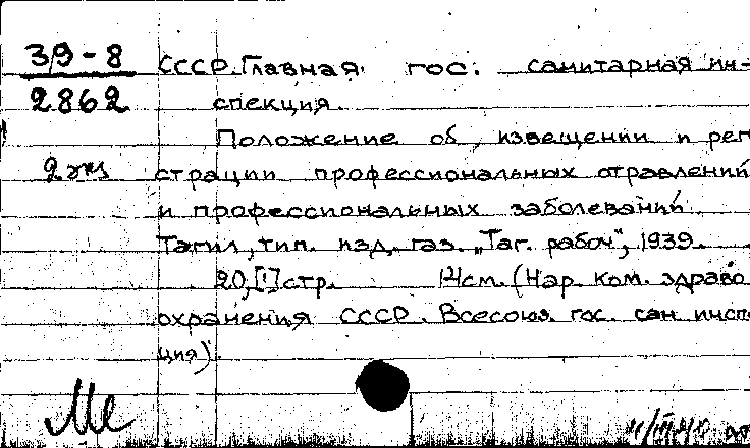 39-8 СССР. Главная гос. санитарная ин-
2862 спекция.
Положение об извещении и рег
2 экз страции профессиональных отравлений
и профессиональных заболеваний.
Тагил, тип. изд. газ. „Таг. рабоч", 1939.
20,[1]стр. см. (Нар. ком. здраво
охранения СССР. Всесоюз. гос. сан инсп
ция).